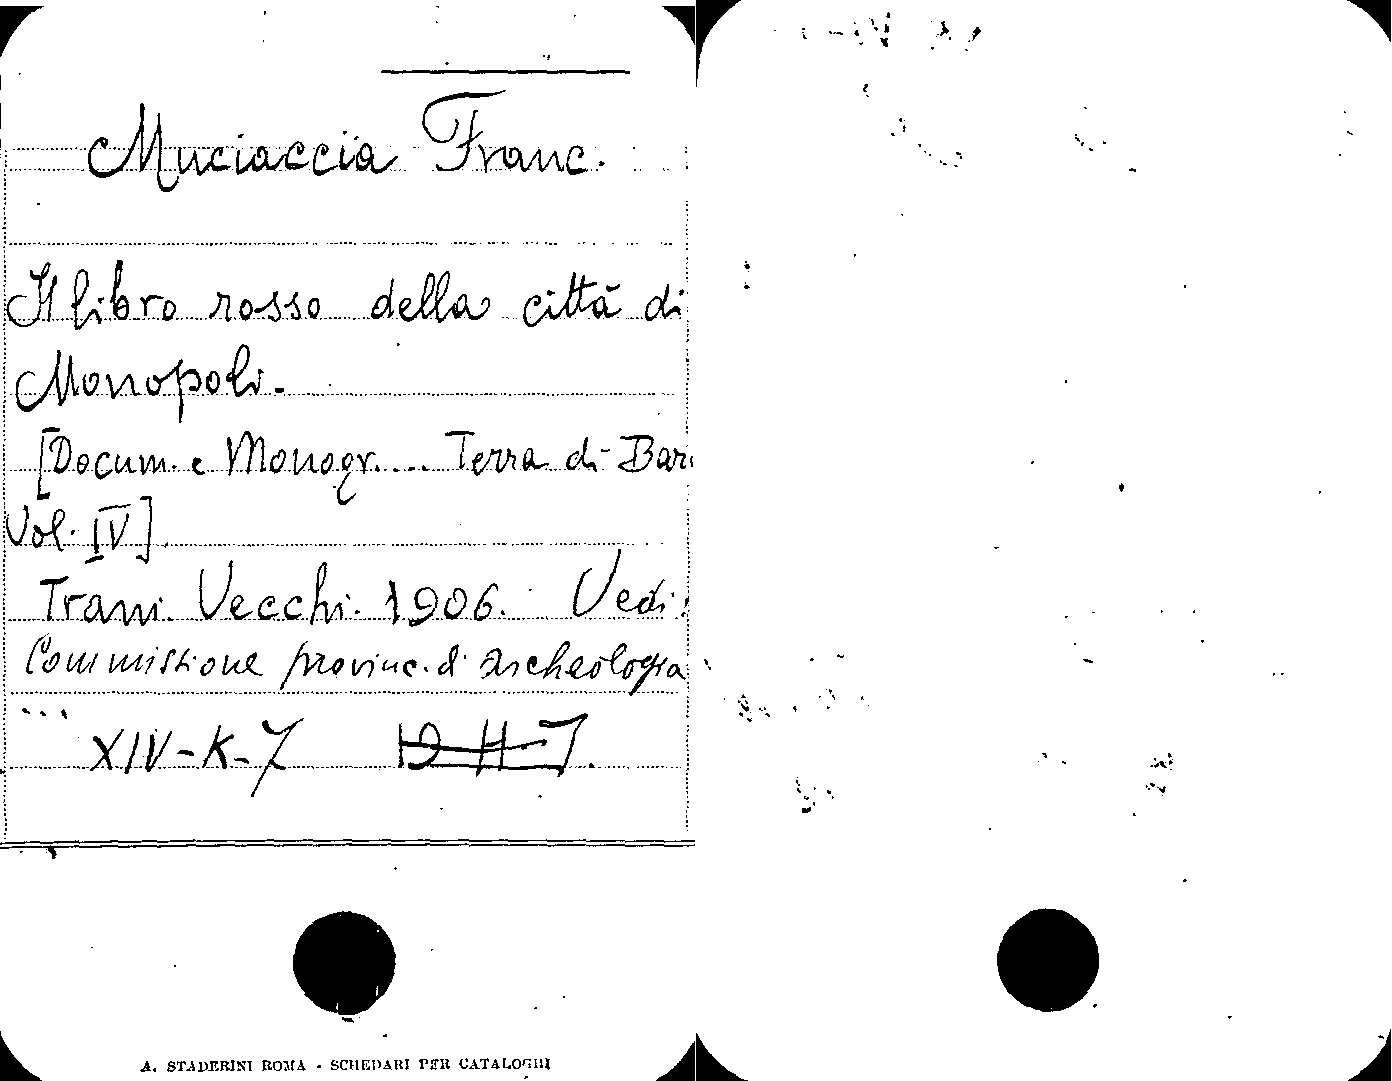 Muciaccia Franc.
Il libro rosso della città di
Monopoli.
[Docum. e Monogr.... Terra di Bari
Vol. IV]
Trani. Vecchi. 1906. Vedi:
Commissione provinc. d' archeologia
...
XIV-K-7 12-H-7.
A. STADERINI ROMA - SCHEDARI PER CATALOGHI